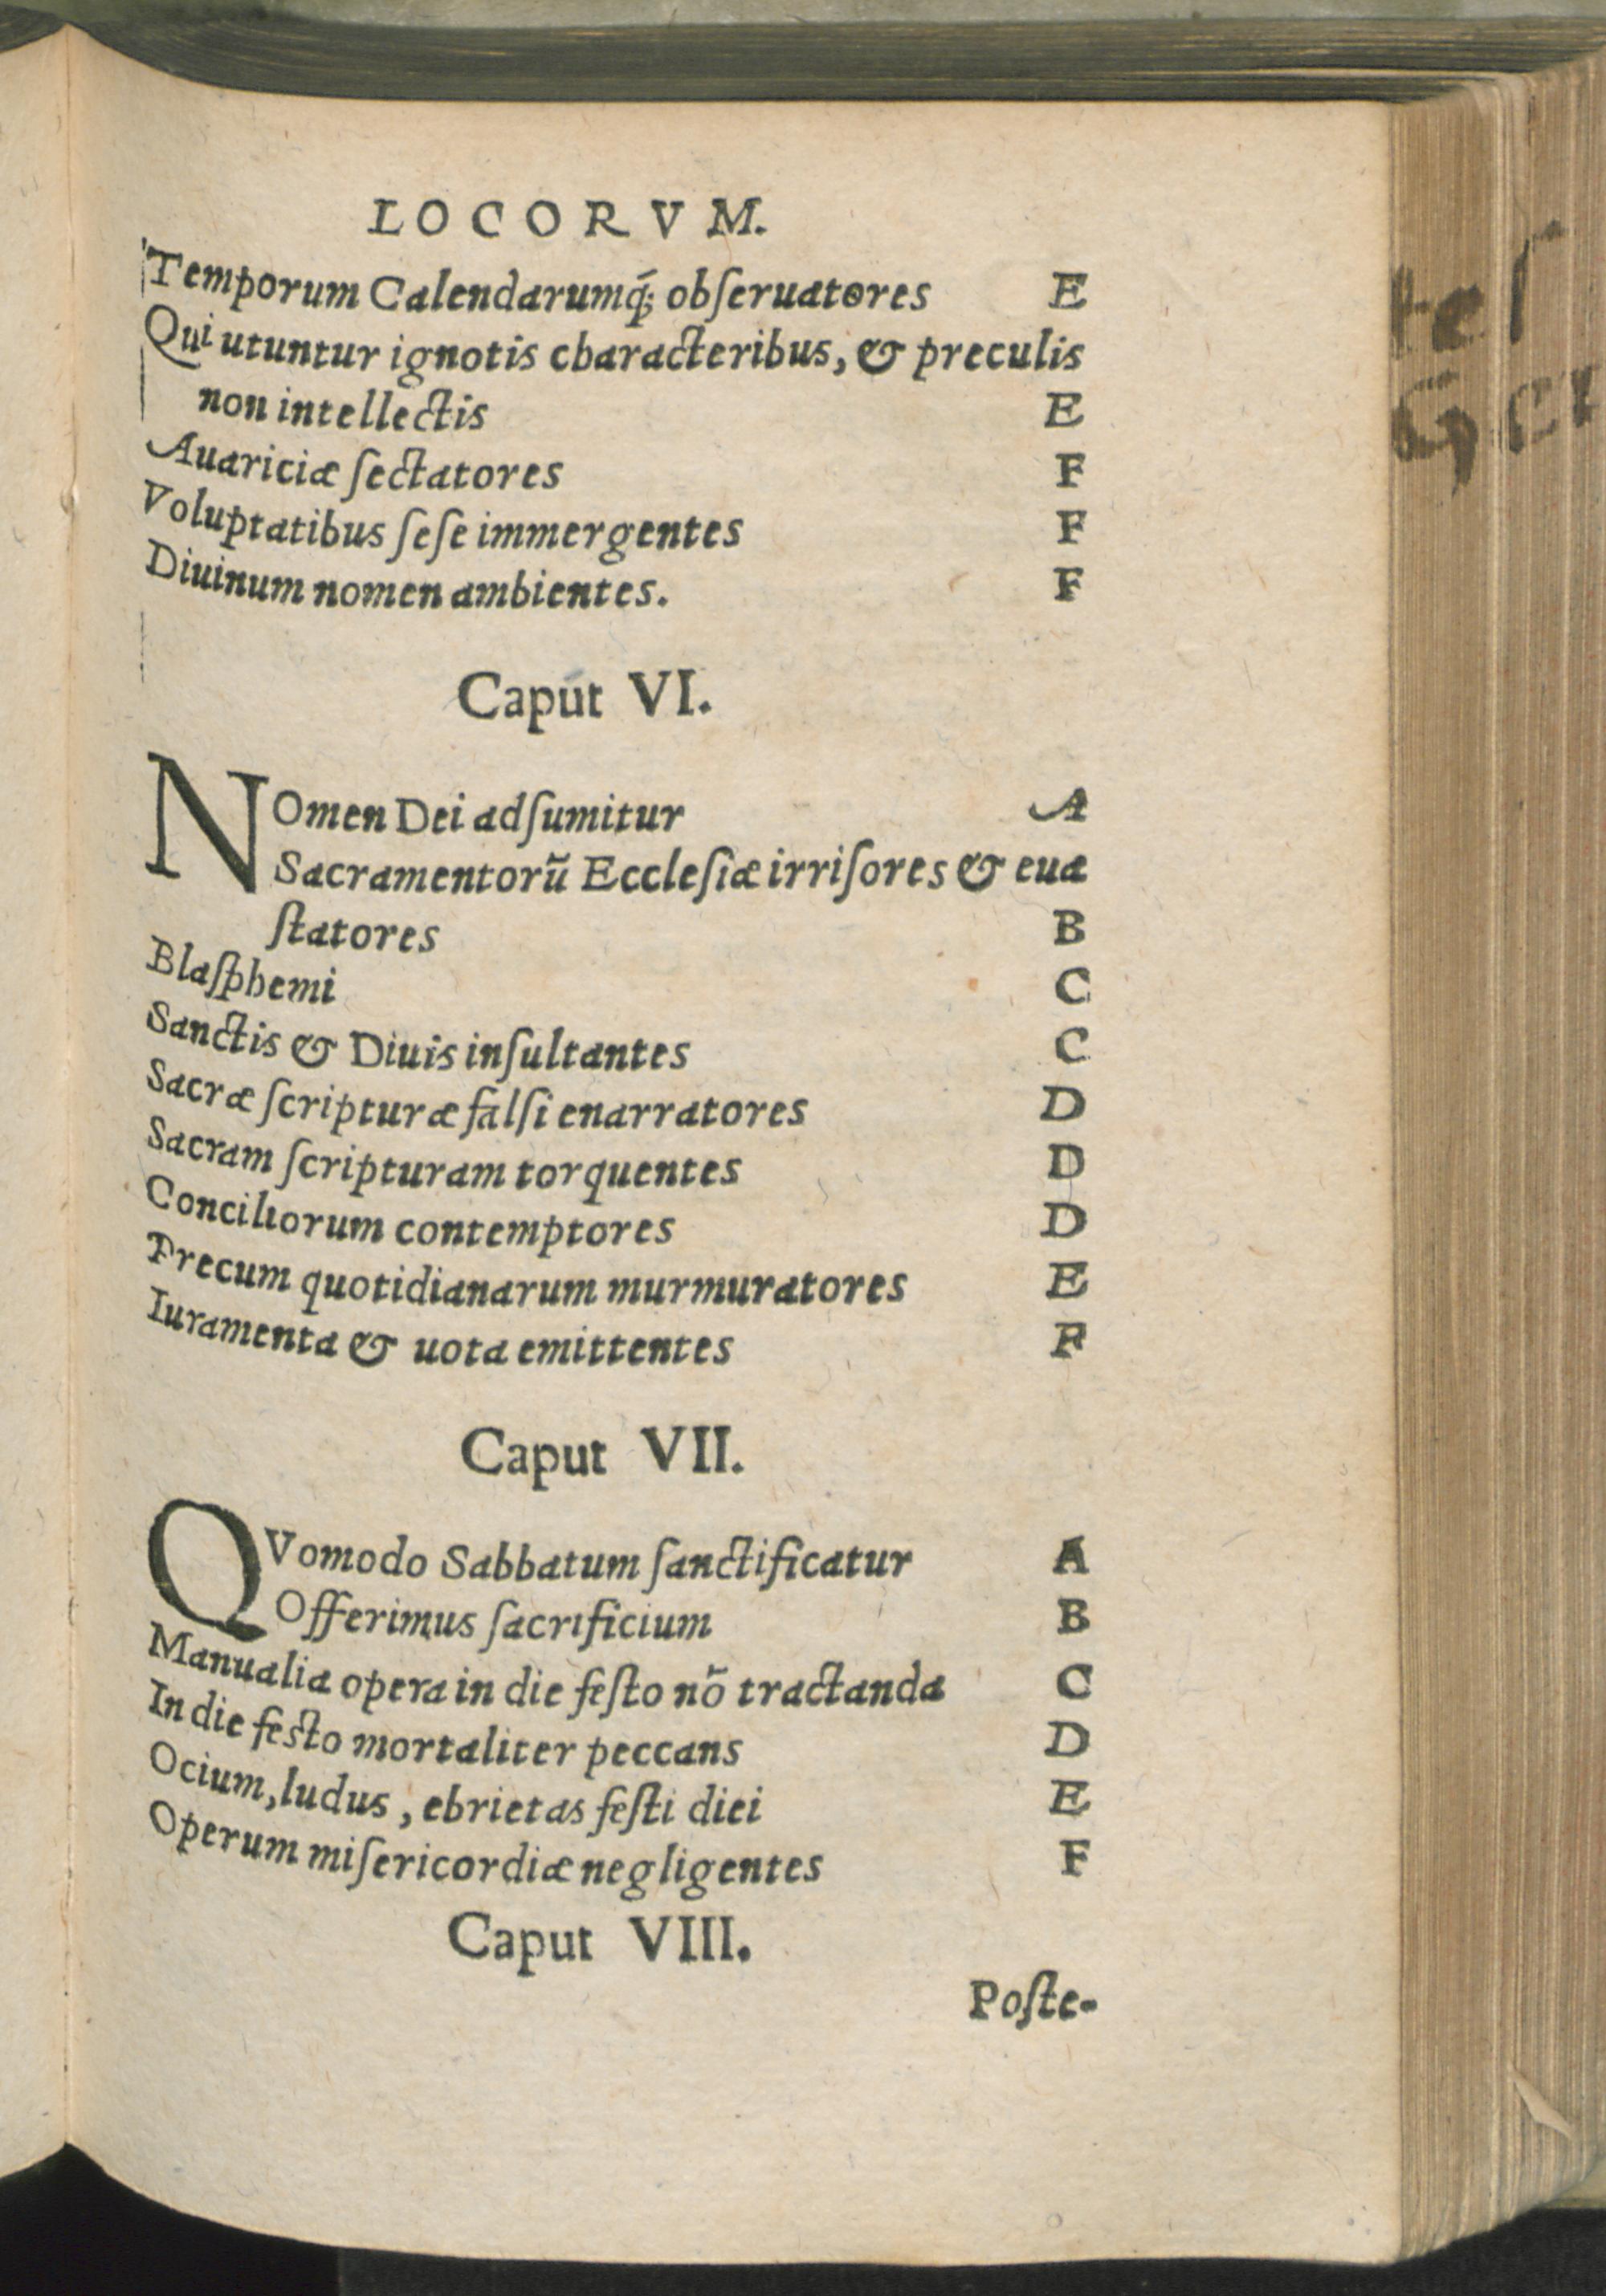 LOCORVM.
Temporum Calendarumq́; obſeruatores E
Qui utuntur ignotis characteribus, & preculis
non intellectis E
Auariciæ ſectatores F
Voluptatibus ſeſe immergentes F
Diuinum nomen ambientes. F
Caput VI.
NOmen Dei adſumitur A
Sacramentorũ Eccleſiæ irriſores & eua
ſtatores B
Blaſphemi C
Sanctis & Diuis inſultantes C
Sacræ ſcripturæ falſi enarratores D
Sacram ſcripturam torquentes D
Conciliorum contemptores D
Precum quotidianarum murmuratores E
Iuramenta & uota emittentes F
Caput VII.
QVomodo Sabbatum ſanctificatur A
Offerimus ſacrificium B
Manualia opera in die feſto nõ tractanda C
In die feſto mortaliter peccans D
Ocium, ludus, ebrietas feſti diei E
Operum miſericordiæ negligentes F
Caput VIII.
Poſte-